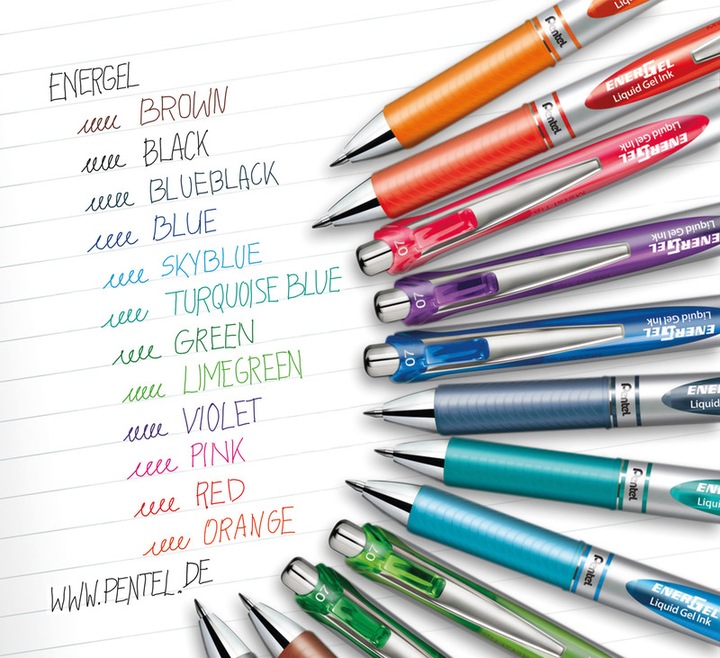 ENERGEL
BROWN
BLACK
BLUEBLACK
BLUE
SKYBLUE
TURQUOISE BLUE
GREEN
LIMEGREEN
VIOLET
PINK
RED
ORANGE
WWW.PENTEL.DE
Pentel
Pentel
ENERGEL
Liquid Gel Ink
07
ENERGEL
Liquid Gel Ink
07
ENERGEL
Liquid Gel Ink
07
ENERGEL
Liquid Gel Ink
Pentel
Liquid
Pentel
Pentel
ENERGEL
Liquid Gel Ink
07
07